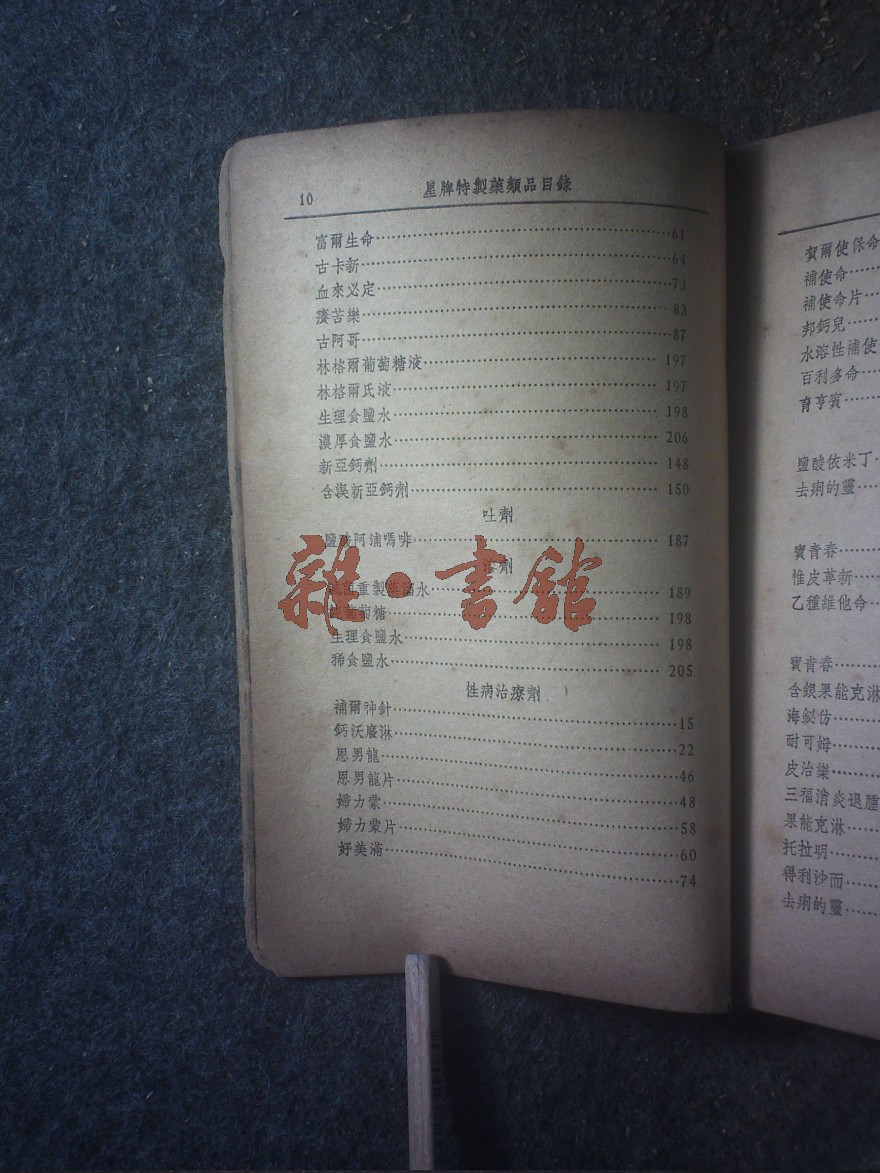 10 星牌特製藥類品目錄
富爾生命 61
古卡新 64
血來必定 73
療苦樂 83
古阿哥 87
林格爾葡萄糖液 197
林格爾氏液 197
生理食鹽水 198
濃厚食鹽水 206
新亞鈣劑 148
含溴新亞鈣劑 150
吐劑
鹽酸阿浦嗎啡 187
溶劑
重製蒸溜水 189
葡萄糖 198
生理食鹽水 198
稀食鹽水 205
性病治療劑
補爾神針 15
鈣沃廢淋 22
恩男龍 46
恩男龍片 48
婦力蒙 58
婦力蒙片 60
好美滿 74
雜·書館
賓爾使保命
補使命
補使命片
邦鈣兒
水溶性補使
百利多命
育亨賓
鹽酸依米丁
去痢的靈
寶青春
惟皮革新
乙種維他命
寶青春
含銀果能克淋
海鉍仿
耐可姆
皮治樂
三福消炎退腫
果能克淋
托拉明
得利沙而
去痢的靈